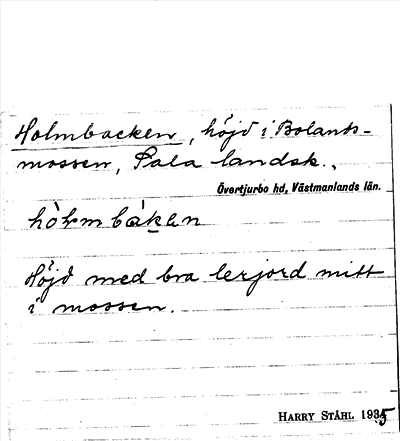 Holmbacken, höjd i Bolands-
mossen, Sala landsk.,
Övertjurbo hd, Västmanlands län.
Höjd med bra lerjord mitt
i mossen.
HARRY STÅHL 1935